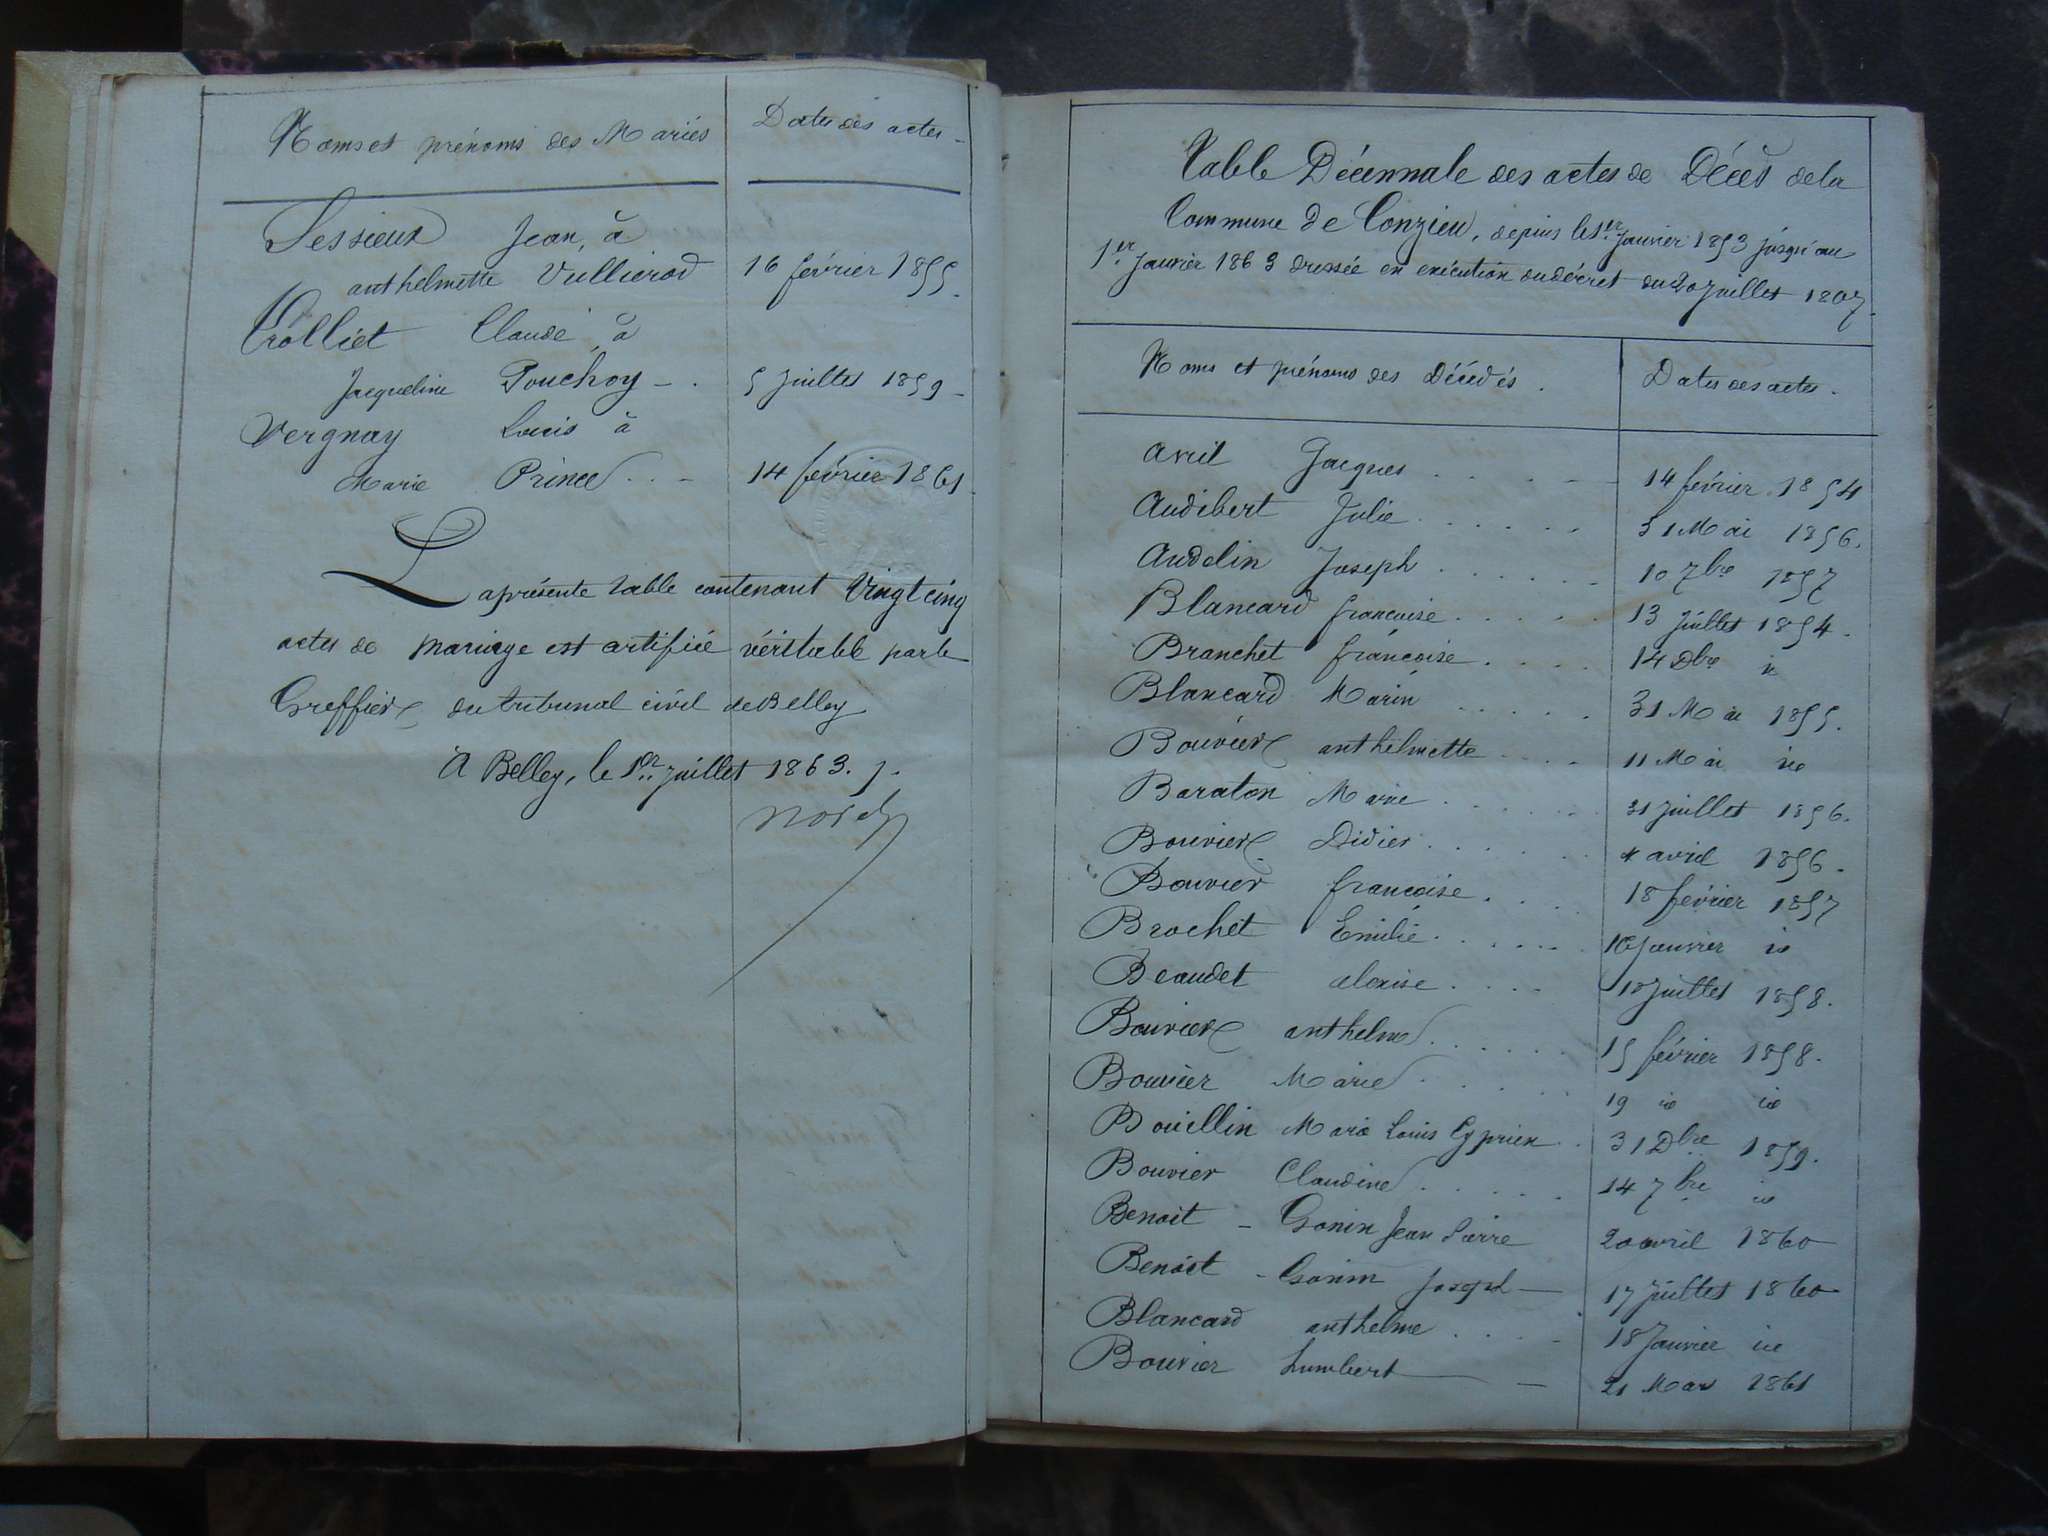 Noms et prénoms des Mariés
Dates des actes
Sessieux Jean, à
anthelmette Vullierod 16 février 1855.
Trolliet Claude, à
Jacqueline Pouchoy 5 juillet 1859
Vergnay Louis à
Marie Prince 14 février 1861
La présente table contenant Vingt cinq
actes de mariage est certifiée véritable par le
Greffier du tribunal civil de Belley
A Belley, le 1er juillet 1863.
Table Décennale des actes de Décès de la
Commune de Conzieu, depuis le 1er Janvier 1853 jusqu'au
1er Janvier 1863 dressée en exécution du décret du 20 Juillet 1807.
Noms et prénoms des Décédés. Dates des actes.
Avril Jacques 14 février 1854
Audibert Julie 31 Mai 1856.
Audelin Joseph 10 7bre 1857
Blancard françoise 13 Juillet 1854.
Branchet françoise 14 Dbre id
Blancard Marin 31 Mai 1855.
Bouvier anthelmette 11 Mai id
Baraton Marie 31 juillet 1856.
Bouvier Didier 4 avril 1856.
Bouvier françoise 18 février 1857
Brochet Emilie 10 Janvier id
Beaudet aloxise 18 Juillet 1858.
Bouvier anthelme 15 février 1858.
Bouvier Marie 19 id id
Bouillin Marie Louis Cyprien 31 Dbre 1859.
Bouvier Claudine 14 7bre id
Benoit - Gonin Jean Pierre 20 avril 1860
Benoit - Gonin Joseph 17 Juillet 1860
Blancard anthelme 18 Janvier id
Bouvier humbert 21 Mars 1861